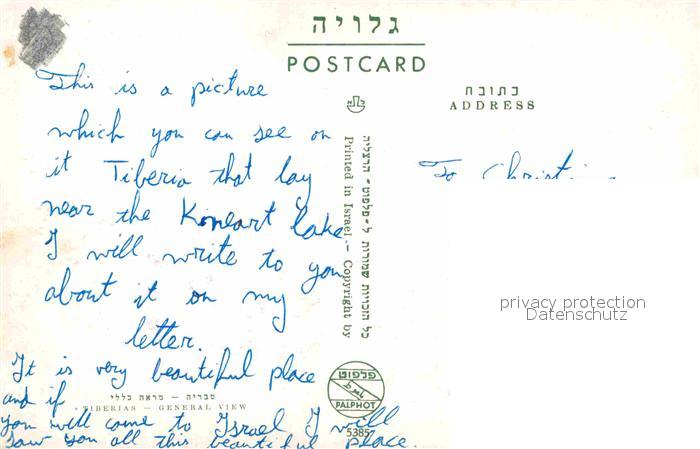 גלויה
POSTCARD
כתובת
ADDRESS
This is a picture
which you can see on
it Tiberia that lay
near the Kineart lake
I will write to you
about it on my
letter.
It is very beautiful place
and if
you will come to Israel I will
saw you all this beautiful place.
To Christi
כל הזכויות שמורות ל-"פלפוט" הרצליה
Printed in Israel - Copyright by
פלפוט
PALPHOT
5385
טבריה — מראה כללי
TIBERIAS — GENERAL VIEW
privacy protection
Datenschutz